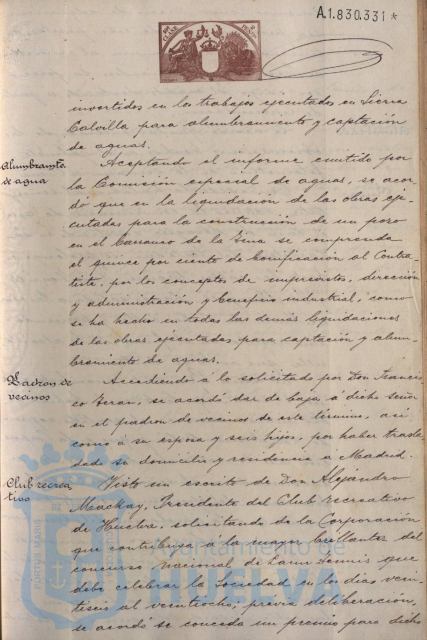 A.1.830.331*
invertidos en los trabajos ejecutados en Sierra
Calvilla para alumbramiento y captación
de aguas.
Alumbramto.
de agua
Aceptando el informe emitido por
la Comisión especial de aguas, se acor-
dó que en la liquidación de las obras eje-
cutadas para la construcción de un pozo
en el Barranco de la se comprenda
el quince por ciento de bonificación al Contra-
tista, por los conceptos de imprevistos, dirección
y administración y beneficio industrial, como
se ha hecho en todas las demás liquidaciones
de las obras ejecutadas para captación y alum-
bramiento de aguas.
Padron de
vecinos
Accediendo á lo solicitado por Don Francis-
co Teran, se acordó dar de baja á dicho señor
en el padron de vecinos de este término, así
como á su esposa y seis hijos, por haber trasla-
dado su domicilio y residencia á Madrid.
Club recrea
tivo
Visto un escrito de Don Alejandro
Mackay, Presidente del Club recreativo
de Huelva, solicitando de la Corporación
que contribuya á la mayor brillantez del
concurso nacional de Lawn Tennis que
debe celebrar la Sociedad en los días vein-
tiseis al veintiocho; previa deliberación,
se acordó se conceda un premio para dicho
Ayuntamiento de
HUELVA